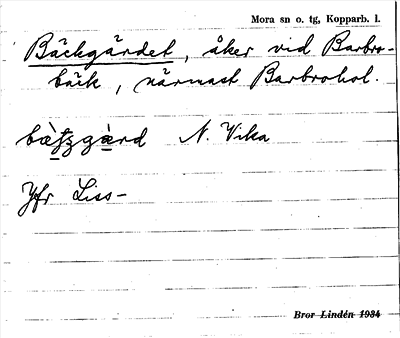 Mora sn o. tg, Kopparb. l.
Bäckgärdet, åker vid Barbro-
bäck, närmast Barbrohol.
N. Vika
Jfr Liss-
Bror Lindén 1934